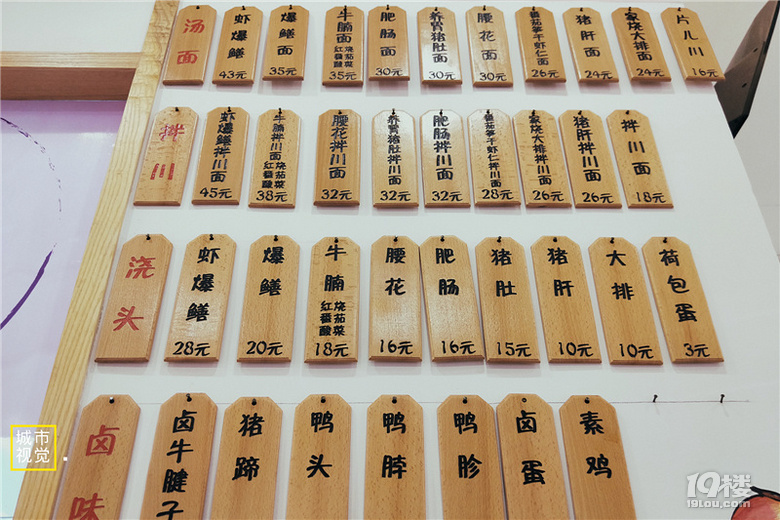 汤面
虾爆鳝 43元
爆鳝面 35元
牛腩面 红烧 番茄 酸菜 35元
肥肠面 30元
养胃猪肚面 30元
腰花面 30元
番茄笋干虾仁面 26元
猪肝面 24元
家烧大排面 24元
片儿川 16元
拌川
虾爆鳝拌川面 45元
牛腩拌川面 红烧 番茄 酸菜 38元
腰花拌川面 32元
养胃猪肚拌川面 32元
肥肠拌川面 32元
番茄笋干虾仁拌川面 28元
家烧大排拌川面 26元
猪肝拌川面 26元
拌川面 18元
浇头
虾爆鳝 28元
爆鳝 20元
牛腩 红烧 番茄 酸菜 18元
腰花 16元
肥肠 16元
猪肚 15元
猪肝 10元
大排 10元
荷包蛋 3元
卤味
卤牛腱子
猪蹄
鸭头
鸭脖
鸭胗
卤蛋
素鸡
城市
视觉
19楼
19lou.com